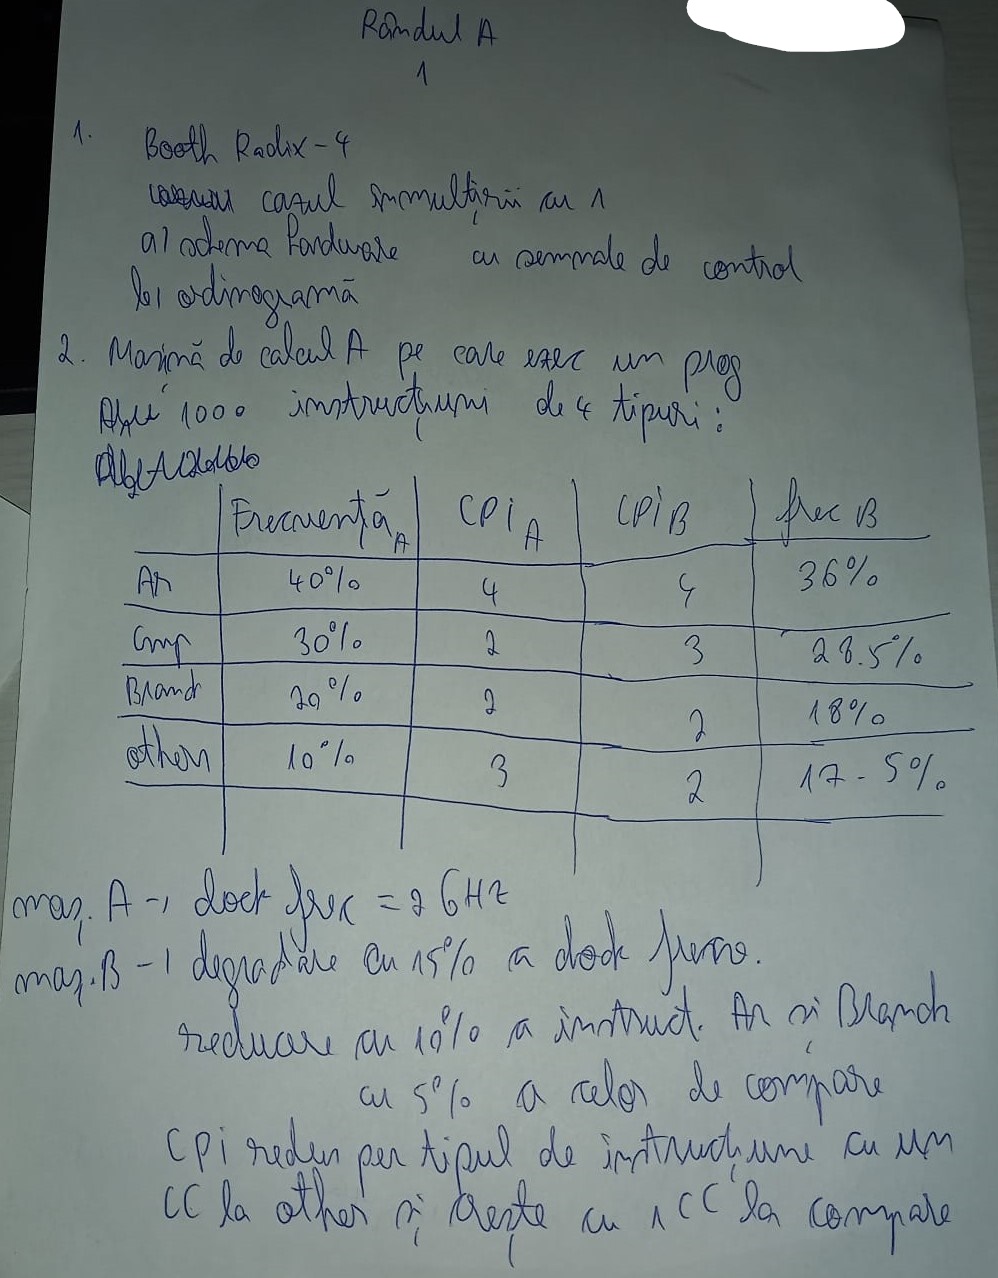 Rândul A
1
1.
Booth Radix-4
cazul înmulțirii cu 1
a) schema hardware cu semnale de control
b) ordinogramă
2. Mașină de calcul A pe care exec un prog
1000 instrucțiuni de 4 tipuri:
Frecvență A CPI A CPI B frec B
Ar 40% 4 4 36%
Cmp 30% 2 3 28.5%
Branch 20% 2 2 18%
other 10% 3 2 17.5%
maș. A -> clock frec = 2 GHz
maș. B -> degradare cu 15% a clock
reducere cu 10% a instruct. Ar și Branch
cu 5% a celor de compare
CPI redus per tipul de instrucțiune cu un
CC la other și crește cu 1 CC la compare